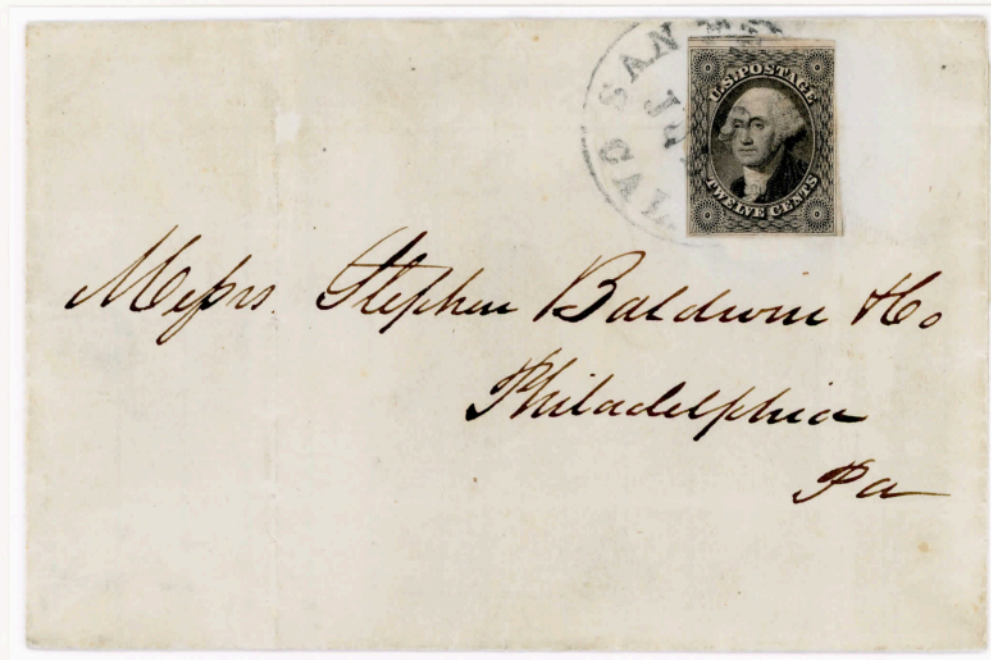 SAN
JU
CAL
U.S. POSTAGE
TWELVE CENTS
Messrs. Stephen Baldwin & Co
Philadelphia
Pa